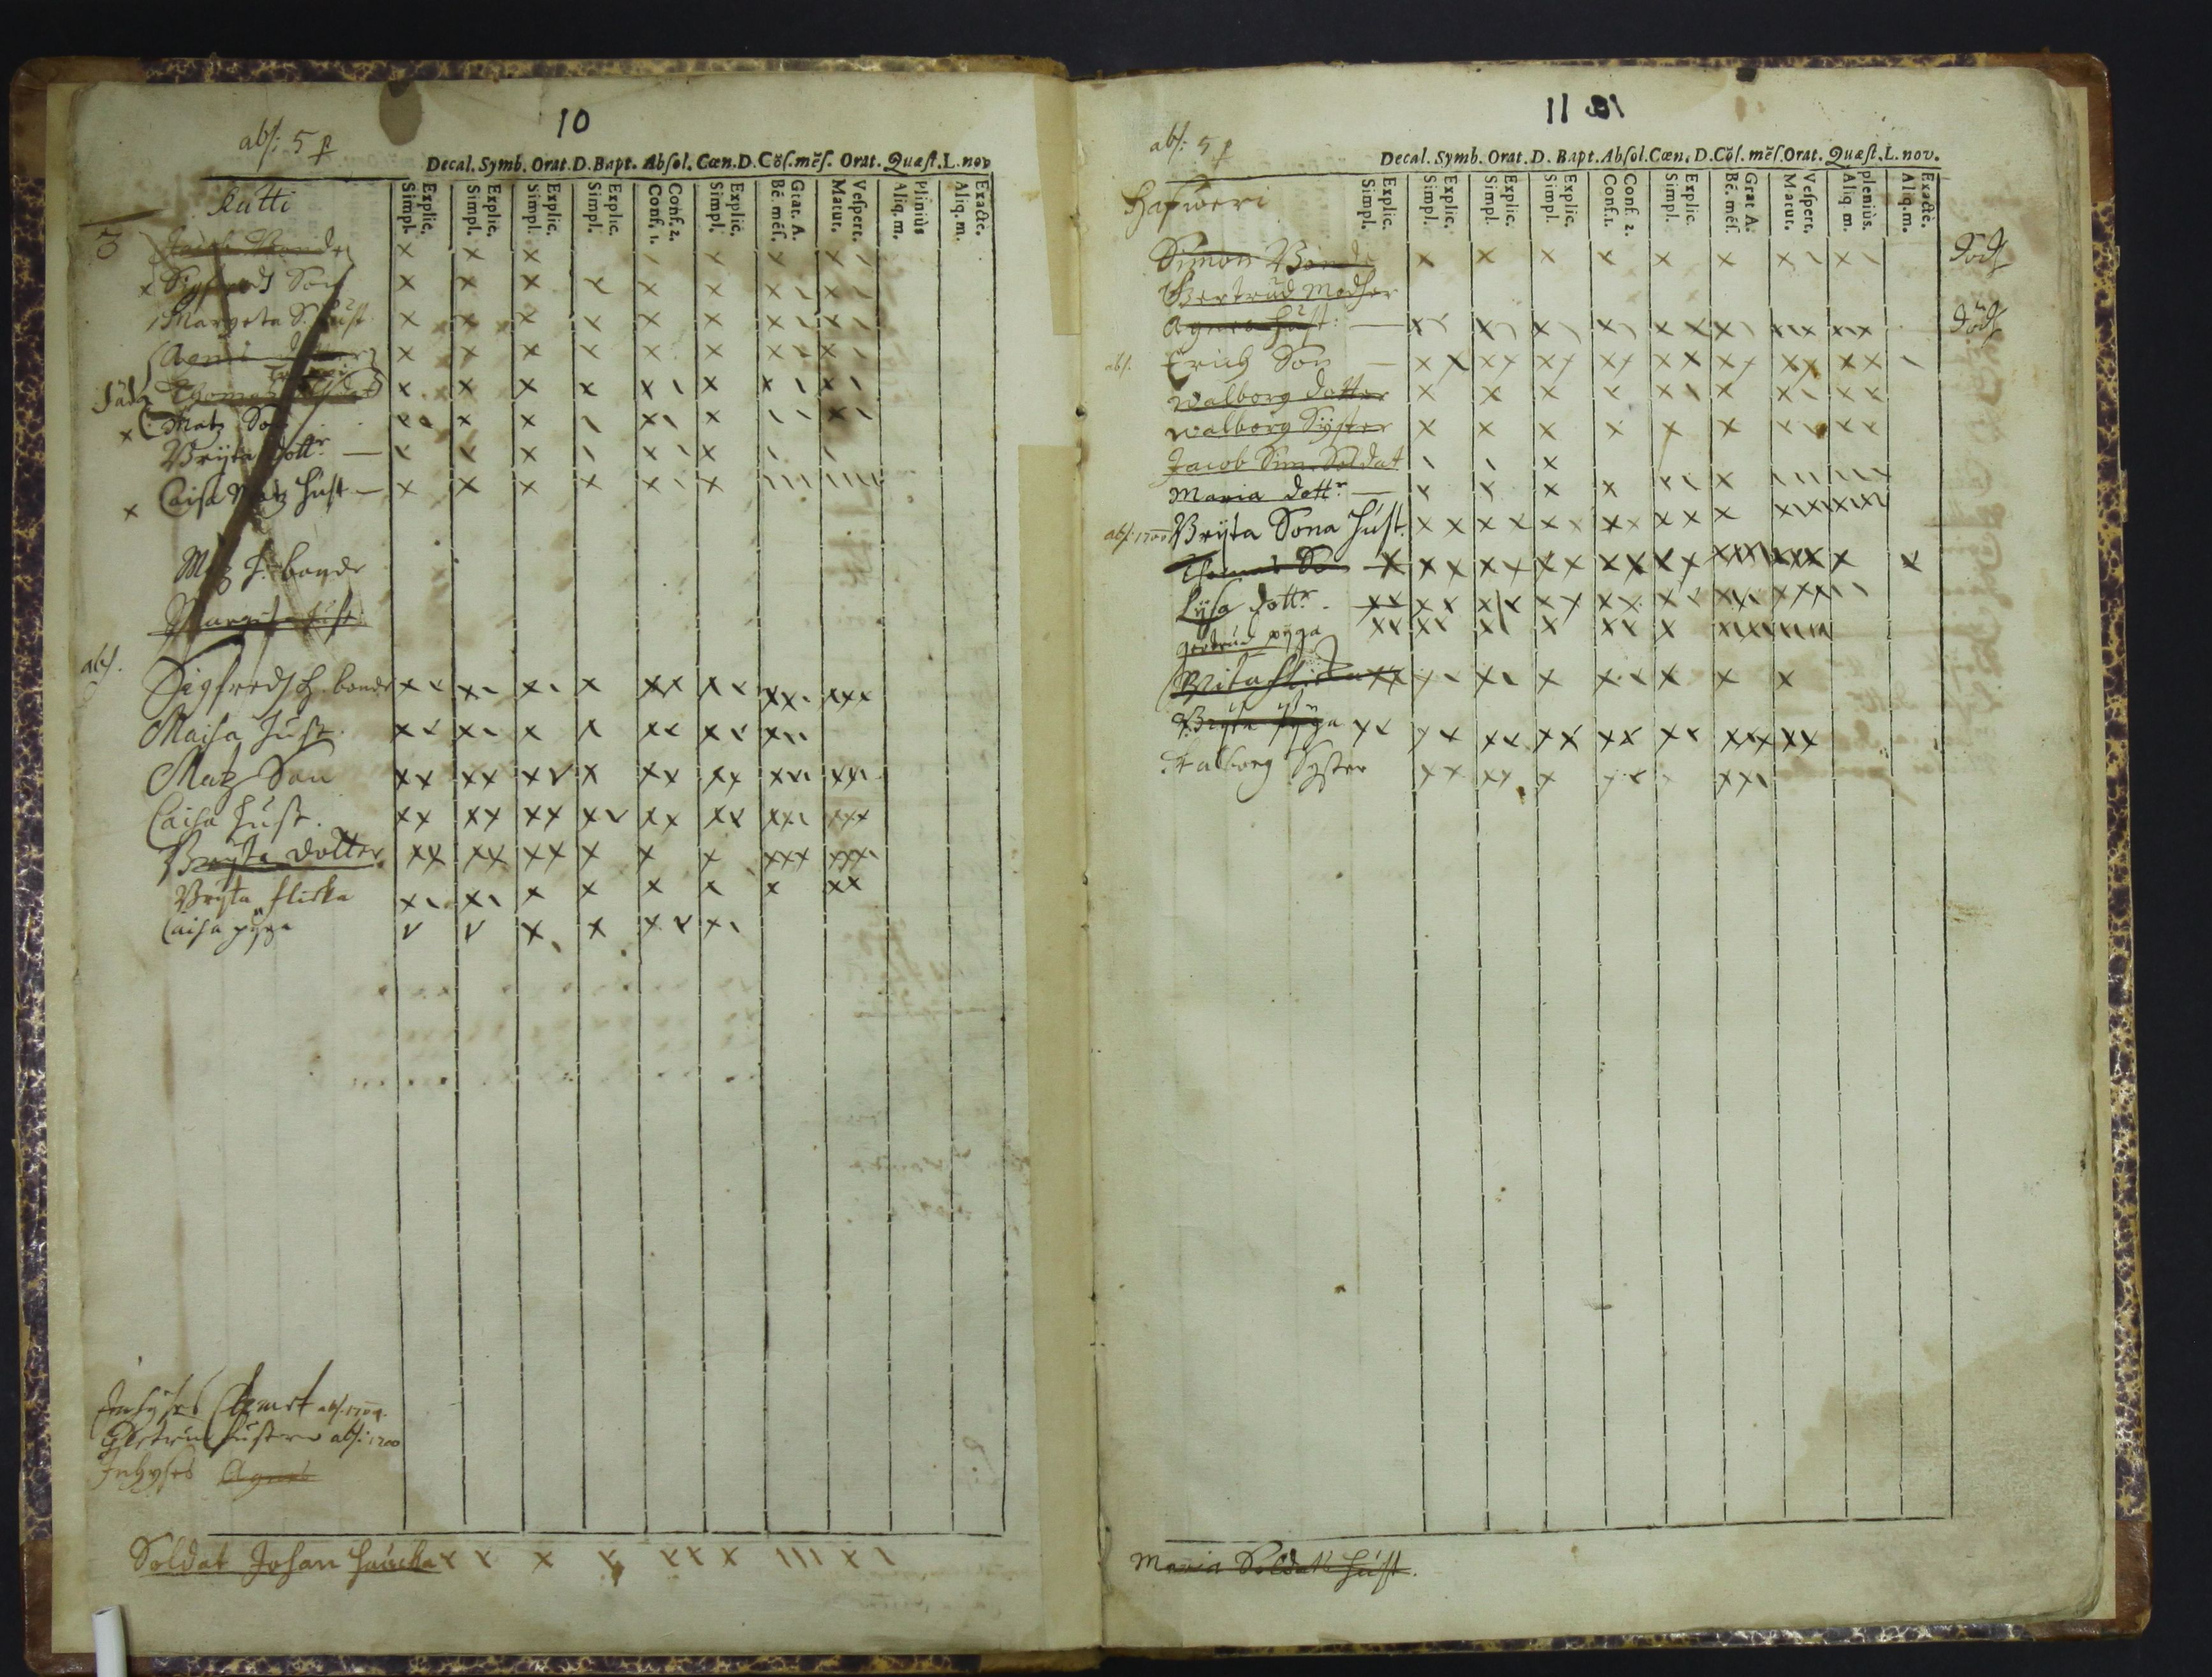 10
abs: 5 p
Decal. Symb. Orat. D. Bapt. Absol. Cœn. D. Cõs. mẽs. Orat. Quæst. L. nov
Kutti
Explic. Simpl. Explic. Simpl. Explic. Simpl. Explic. Simpl. Conf. 2. Conf. 1. Explic. Simpl. Grat. A. Bẽ. mẽs. Vespert. Matut. Pliniùs Aliq. m. Exactè. Aliq. m.
Sigfreds Son
Margeta S. Hust
Agnis
Thomas
Matz Son
Brijta dottr
Caisa Matz Hust
Matz h. bonde
Margeta Hust
abs.
Sigfreds h. bonde
Maisa Hust.
Matz Son
Caisa Hust.
Brijta dotter
Brijta flicka
Caisa pyga
Inhyses Clemet abs. 1709.
Gertrud hustru abs: 1700
Inhyses Agnes
Soldat Johan Haucka
11
abs: 5 p
Decal. Symb. Orat. D. Bapt. Absol. Cœn. D. Cõs. mẽs. Orat. Quæst. L. nov.
Hafweri
Explic. Simpl. Explic. Simpl. Explic. Simpl. Explic. Simpl. Conf. 2. Conf. 1. Explic. Simpl. Grat A. Bẽ. mẽs. Vespert. Matut. pleniùs. Aliq m. Exactè. Aliq. m.
Simon Bonde död
Gertrud Modher
Agnes Hust: död
abs. Erich Son
Walborg dotter
Walborg Syster
Jacob Sim. Soldat
Maria dottr
abs: 1700 Brijta Sona Hust.
Thomas So
Lysa dottr.
gertrud pyga
Brita flicka
Brijta pyga
Walborg Syster
Maria Soldatz Hust.